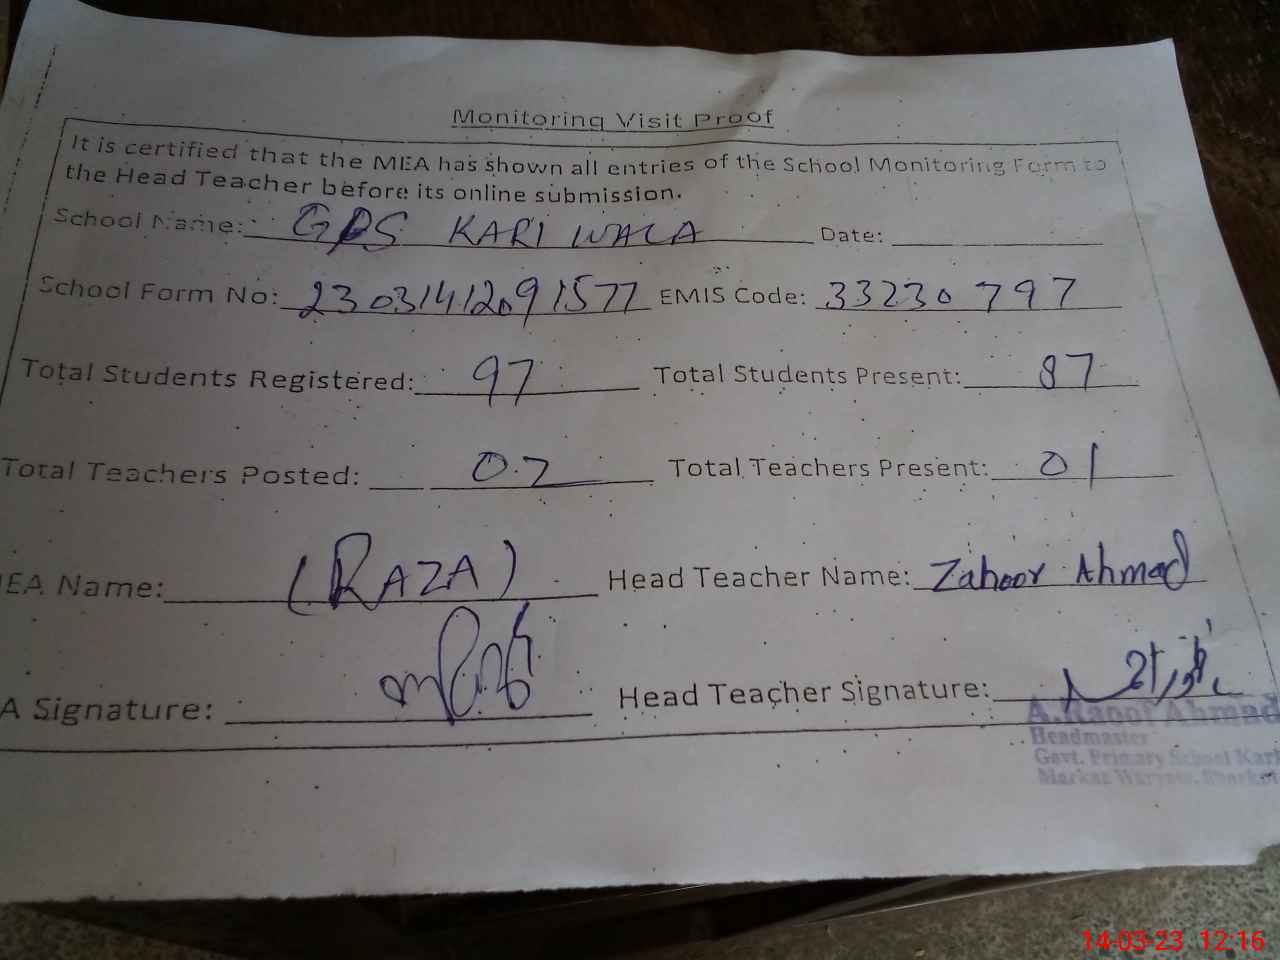 Monitoring Visit Proof
It is certified that the MEA has shown all entries of the School Monitoring Form to
the Head Teacher before its online submission.
School Name: GPS KARI WALA Date:
School Form No: 23031412091577 EMIS Code: 33230797
Total Students Registered: 97 Total Students Present: 87
Total Teachers Posted: 02 Total Teachers Present: 01
EA Name: (RAZA) Head Teacher Name: Zahoor Ahmad
A Signature: Head Teacher Signature:
A.Raoof Ahmad
Headmaster
Govt. Primary School Kari
Markaz
14-03-23 12:16